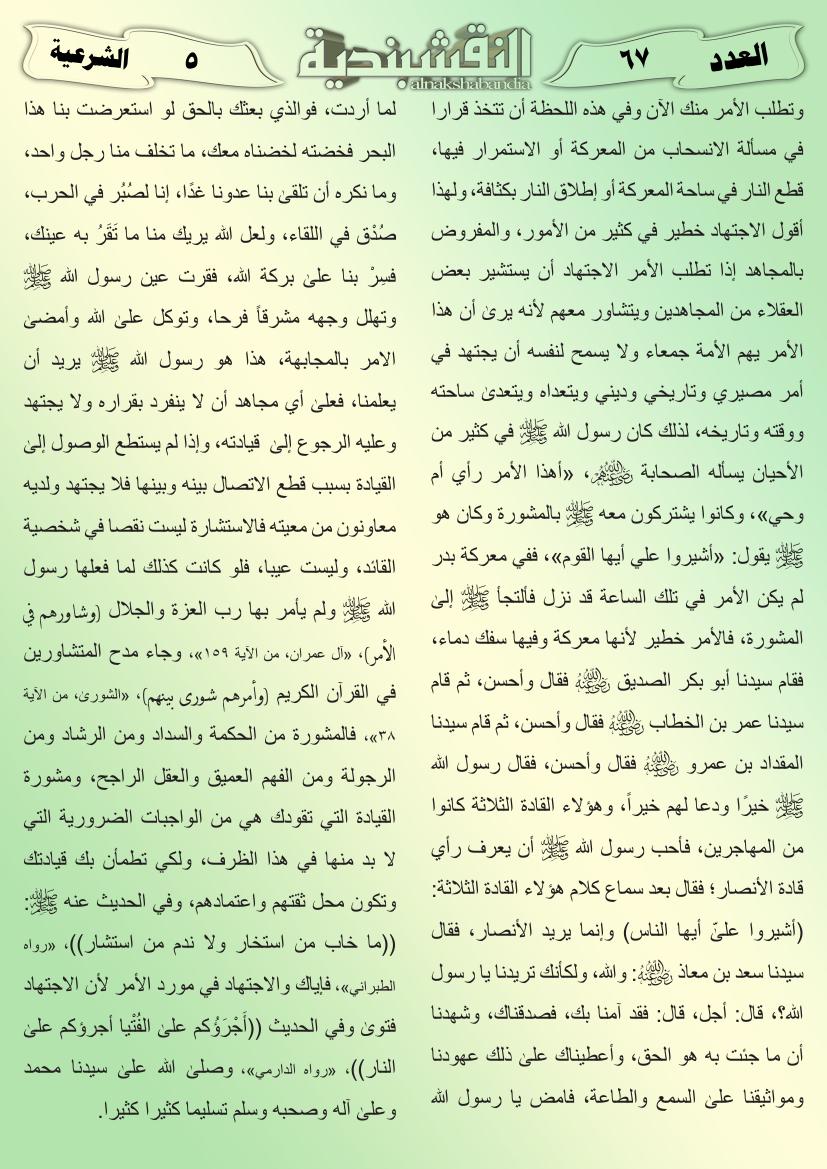 العدد
٦٧
النقشبندية
alnakshabandia
٥
الشرعية
وتطلب الأمر منك الآن وفي هذه اللحظة أن تتخذ قرارا
في مسألة الانسحاب من المعركة أو الاستمرار فيها،
قطع النار في ساحة المعركة أو إطلاق النار بكثافة، ولهذا
أقول الاجتهاد خطير في كثير من الأمور، والمفروض
بالمجاهد إذا تطلب الأمر الاجتهاد أن يستشير بعض
العقلاء من المجاهدين ويتشاور معهم لأنه يرىٰ أن هذا
الأمر يهم الأمة جمعاء ولا يسمح لنفسه أن يجتهد في
أمر مصيري وتاريخي وديني ويتعداه ويتعدىٰ ساحته
ووقته وتاريخه، لذلك كان رسول الله ﷺ في كثير من
الأحيان يسأله الصحابة رضي الله عنهم، «أهذا الأمر رأي أم
وحي»، وكانوا يشتركون معه ﷺ بالمشورة وكان هو
ﷺ يقول: «أشيروا علي أيها القوم»، ففي معركة بدر
لم يكن الأمر في تلك الساعة قد نزل فألتجأ ﷺ إلىٰ
المشورة، فالأمر خطير لأنها معركة وفيها سفك دماء،
فقام سيدنا أبو بكر الصديق رضي الله عنه فقال وأحسن، ثم قام
سيدنا عمر بن الخطاب رضي الله عنه فقال وأحسن، ثم قام سيدنا
المقداد بن عمرو رضي الله عنه فقال وأحسن، فقال رسول الله
ﷺ خيرًا ودعا لهم خيراً، وهؤلاء القادة الثلاثة كانوا
من المهاجرين، فأحب رسول الله ﷺ أن يعرف رأي
قادة الأنصار؛ فقال بعد سماع كلام هؤلاء القادة الثلاثة:
(أشيروا علىّ أيها الناس) وإنما يريد الأنصار، فقال
سيدنا سعد بن معاذ رضي الله عنه: والله، ولكأنك تريدنا يا رسول
الله؟، قال: أجل، قال: فقد آمنا بك، فصدقناك، وشهدنا
أن ما جئت به هو الحق، وأعطيناك علىٰ ذلك عهودنا
ومواثيقنا علىٰ السمع والطاعة، فامض يا رسول الله
لما أردت، فوالذي بعثك بالحق لو استعرضت بنا هذا
البحر فخضته لخضناه معك، ما تخلف منا رجل واحد،
وما نكره أن تلقىٰ بنا عدونا غدًا، إنا لصُبُر في الحرب،
صُدْق في اللقاء، ولعل الله يريك منا ما تَقَرُ به عينك،
فسِرْ بنا علىٰ بركة الله، فقرت عين رسول الله ﷺ
وتهلل وجهه مشرقاً فرحا، وتوكل علىٰ الله وأمضىٰ
الامر بالمجابهة، هذا هو رسول الله ﷺ يريد أن
يعلمنا، فعلىٰ أي مجاهد أن لا ينفرد بقراره ولا يجتهد
وعليه الرجوع إلىٰ قيادته، وإذا لم يستطع الوصول إلىٰ
القيادة بسبب قطع الاتصال بينه وبينها فلا يجتهد ولديه
معاونون من معيته فالاستشارة ليست نقصا في شخصية
القائد، وليست عيبا، فلو كانت كذلك لما فعلها رسول
الله ﷺ ولم يأمر بها رب العزة والجلال (وشاورهم في
الأمر)، «آل عمران، من الآية ١٥٩»، وجاء مدح المتشاورين
في القرآن الكريم (وأمرهم شورى بينهم)، «الشورىٰ، من الآية
٣٨»، فالمشورة من الحكمة والسداد ومن الرشاد ومن
الرجولة ومن الفهم العميق والعقل الراجح، ومشورة
القيادة التي تقودك هي من الواجبات الضرورية التي
لا بد منها في هذا الظرف، ولكي تطمأن بك قيادتك
وتكون محل ثقتهم واعتمادهم، وفي الحديث عنه ﷺ:
((ما خاب من استخار ولا ندم من استشار))، «رواه
الطبراني»، فإياك والاجتهاد في مورد الأمر لأن الاجتهاد
فتوىٰ وفي الحديث ((أَجْرَؤُكم علىٰ الفُتْيا أجرؤكم علىٰ
النار))، «رواه الدارمي»، وصلىٰ الله علىٰ سيدنا محمد
وعلىٰ آله وصحبه وسلم تسليما كثيرا كثيرا.